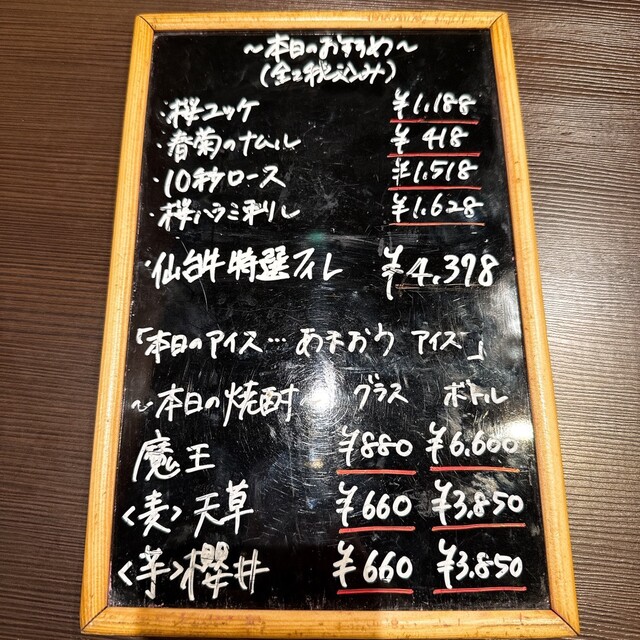 ～本日のおすすめ～
(全て税込み)
・桜ユッケ ¥1.188
・春菊のナムル ¥418
・10秒ロース ¥1.518
・桜ハラミ刺し ¥1.628
・仙台牛特選フィレ ¥4.398
「本日のアイス…あまおうアイス」
～本日の焼酎 グラス ボトル
魔王 ¥880 ¥6.600
<麦>天草 ¥660 ¥3.850
<芋>櫻井 ¥660 ¥3.850